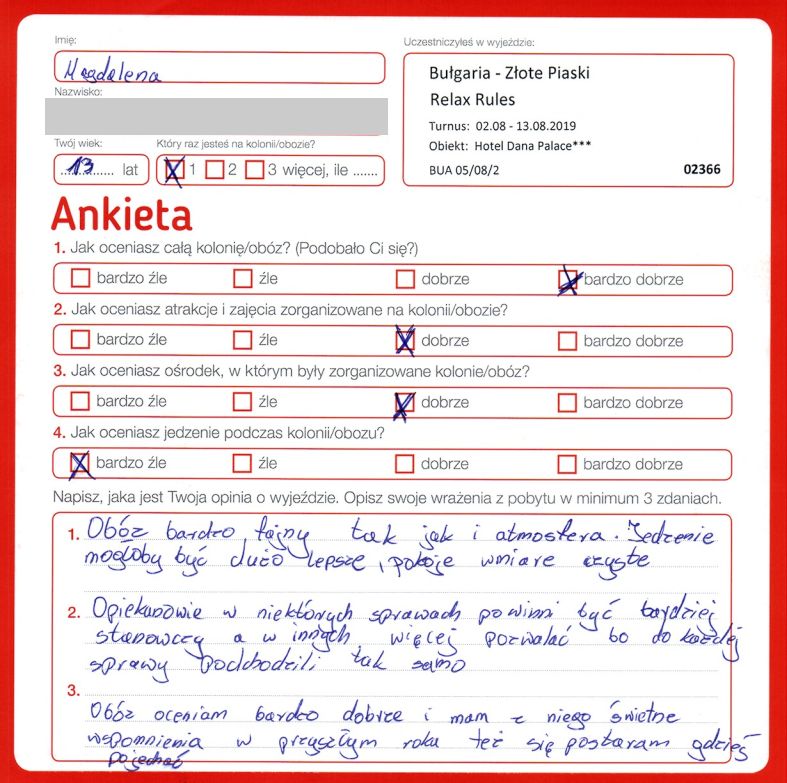 Imię:
Magdalena
Nazwisko:
Twój wiek:
13 lat
Który raz jesteś na kolonii/obozie?
1 2 3 więcej, ile .......
Uczestniczyłeś w wyjeździe:
Bułgaria - Złote Piaski
Relax Rules
Turnus: 02.08 - 13.08.2019
Obiekt: Hotel Dana Palace***
BUA 05/08/2 02366
Ankieta
1. Jak oceniasz całą kolonię/obóz? (Podobało Ci się?)
bardzo źle źle dobrze bardzo dobrze
2. Jak oceniasz atrakcje i zajęcia zorganizowane na kolonii/obozie?
bardzo źle źle dobrze bardzo dobrze
3. Jak oceniasz ośrodek, w którym były zorganizowane kolonie/obóz?
bardzo źle źle dobrze bardzo dobrze
4. Jak oceniasz jedzenie podczas kolonii/obozu?
bardzo źle źle dobrze bardzo dobrze
Napisz, jaka jest Twoja opinia o wyjeździe. Opisz swoje wrażenia z pobytu w minimum 3 zdaniach.
1. Obóz bardzo fajny tak jak i atmosfera. Jedzenie
mogłoby być dużo lepsze, pokoje wmiare czyste
2. Opiekunowie w niektórych sprawach powinni być bardziej
stanowczy a w innych więcej pozwalać bo do każdej
sprawy podchodzili tak samo
3.
Obóz oceniam bardzo dobrze i mam z niego świetne
wspomnienia w przyszłym roku też się postaram gdzieś
pojechać